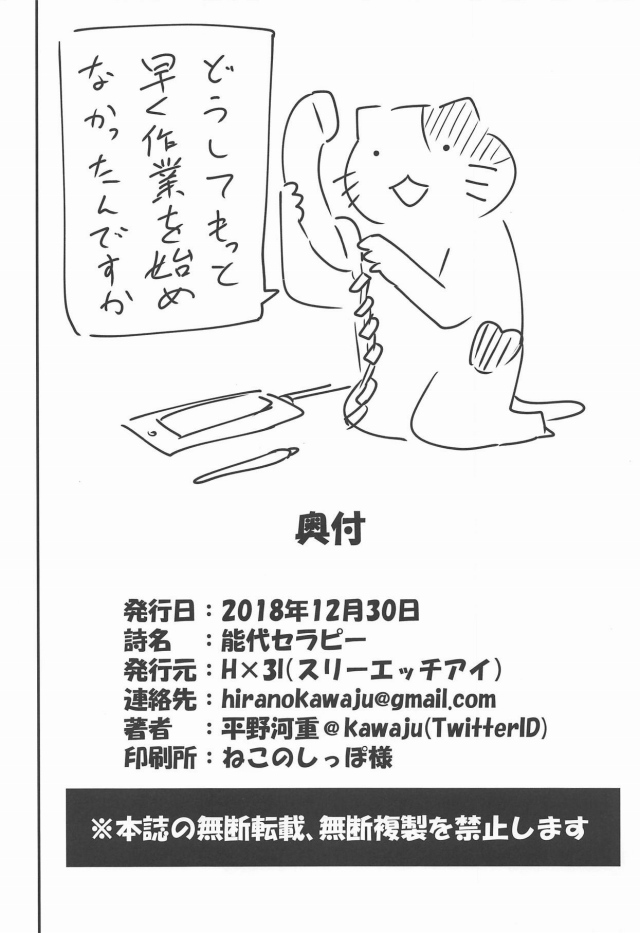 どうしてもっと
早く作業を始め
なかったんですか
奥付
発行日：2018年12月30日
詩名　：能代セラピー
発行元：H×3I(スリーエッチアイ)
連絡先：hiranokawaju@gmail.com
著者　：平野河重@kawaju(TwitterID)
印刷所：ねこのしっぽ様
※本誌の無断転載、無断複製を禁止します